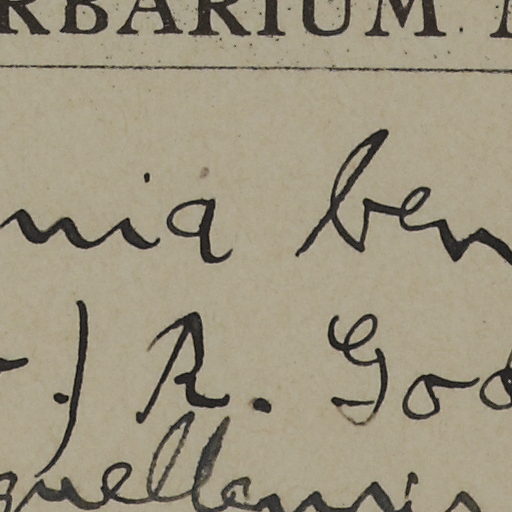 RBARIUM
nia ben
.) R. Goo
quellensis